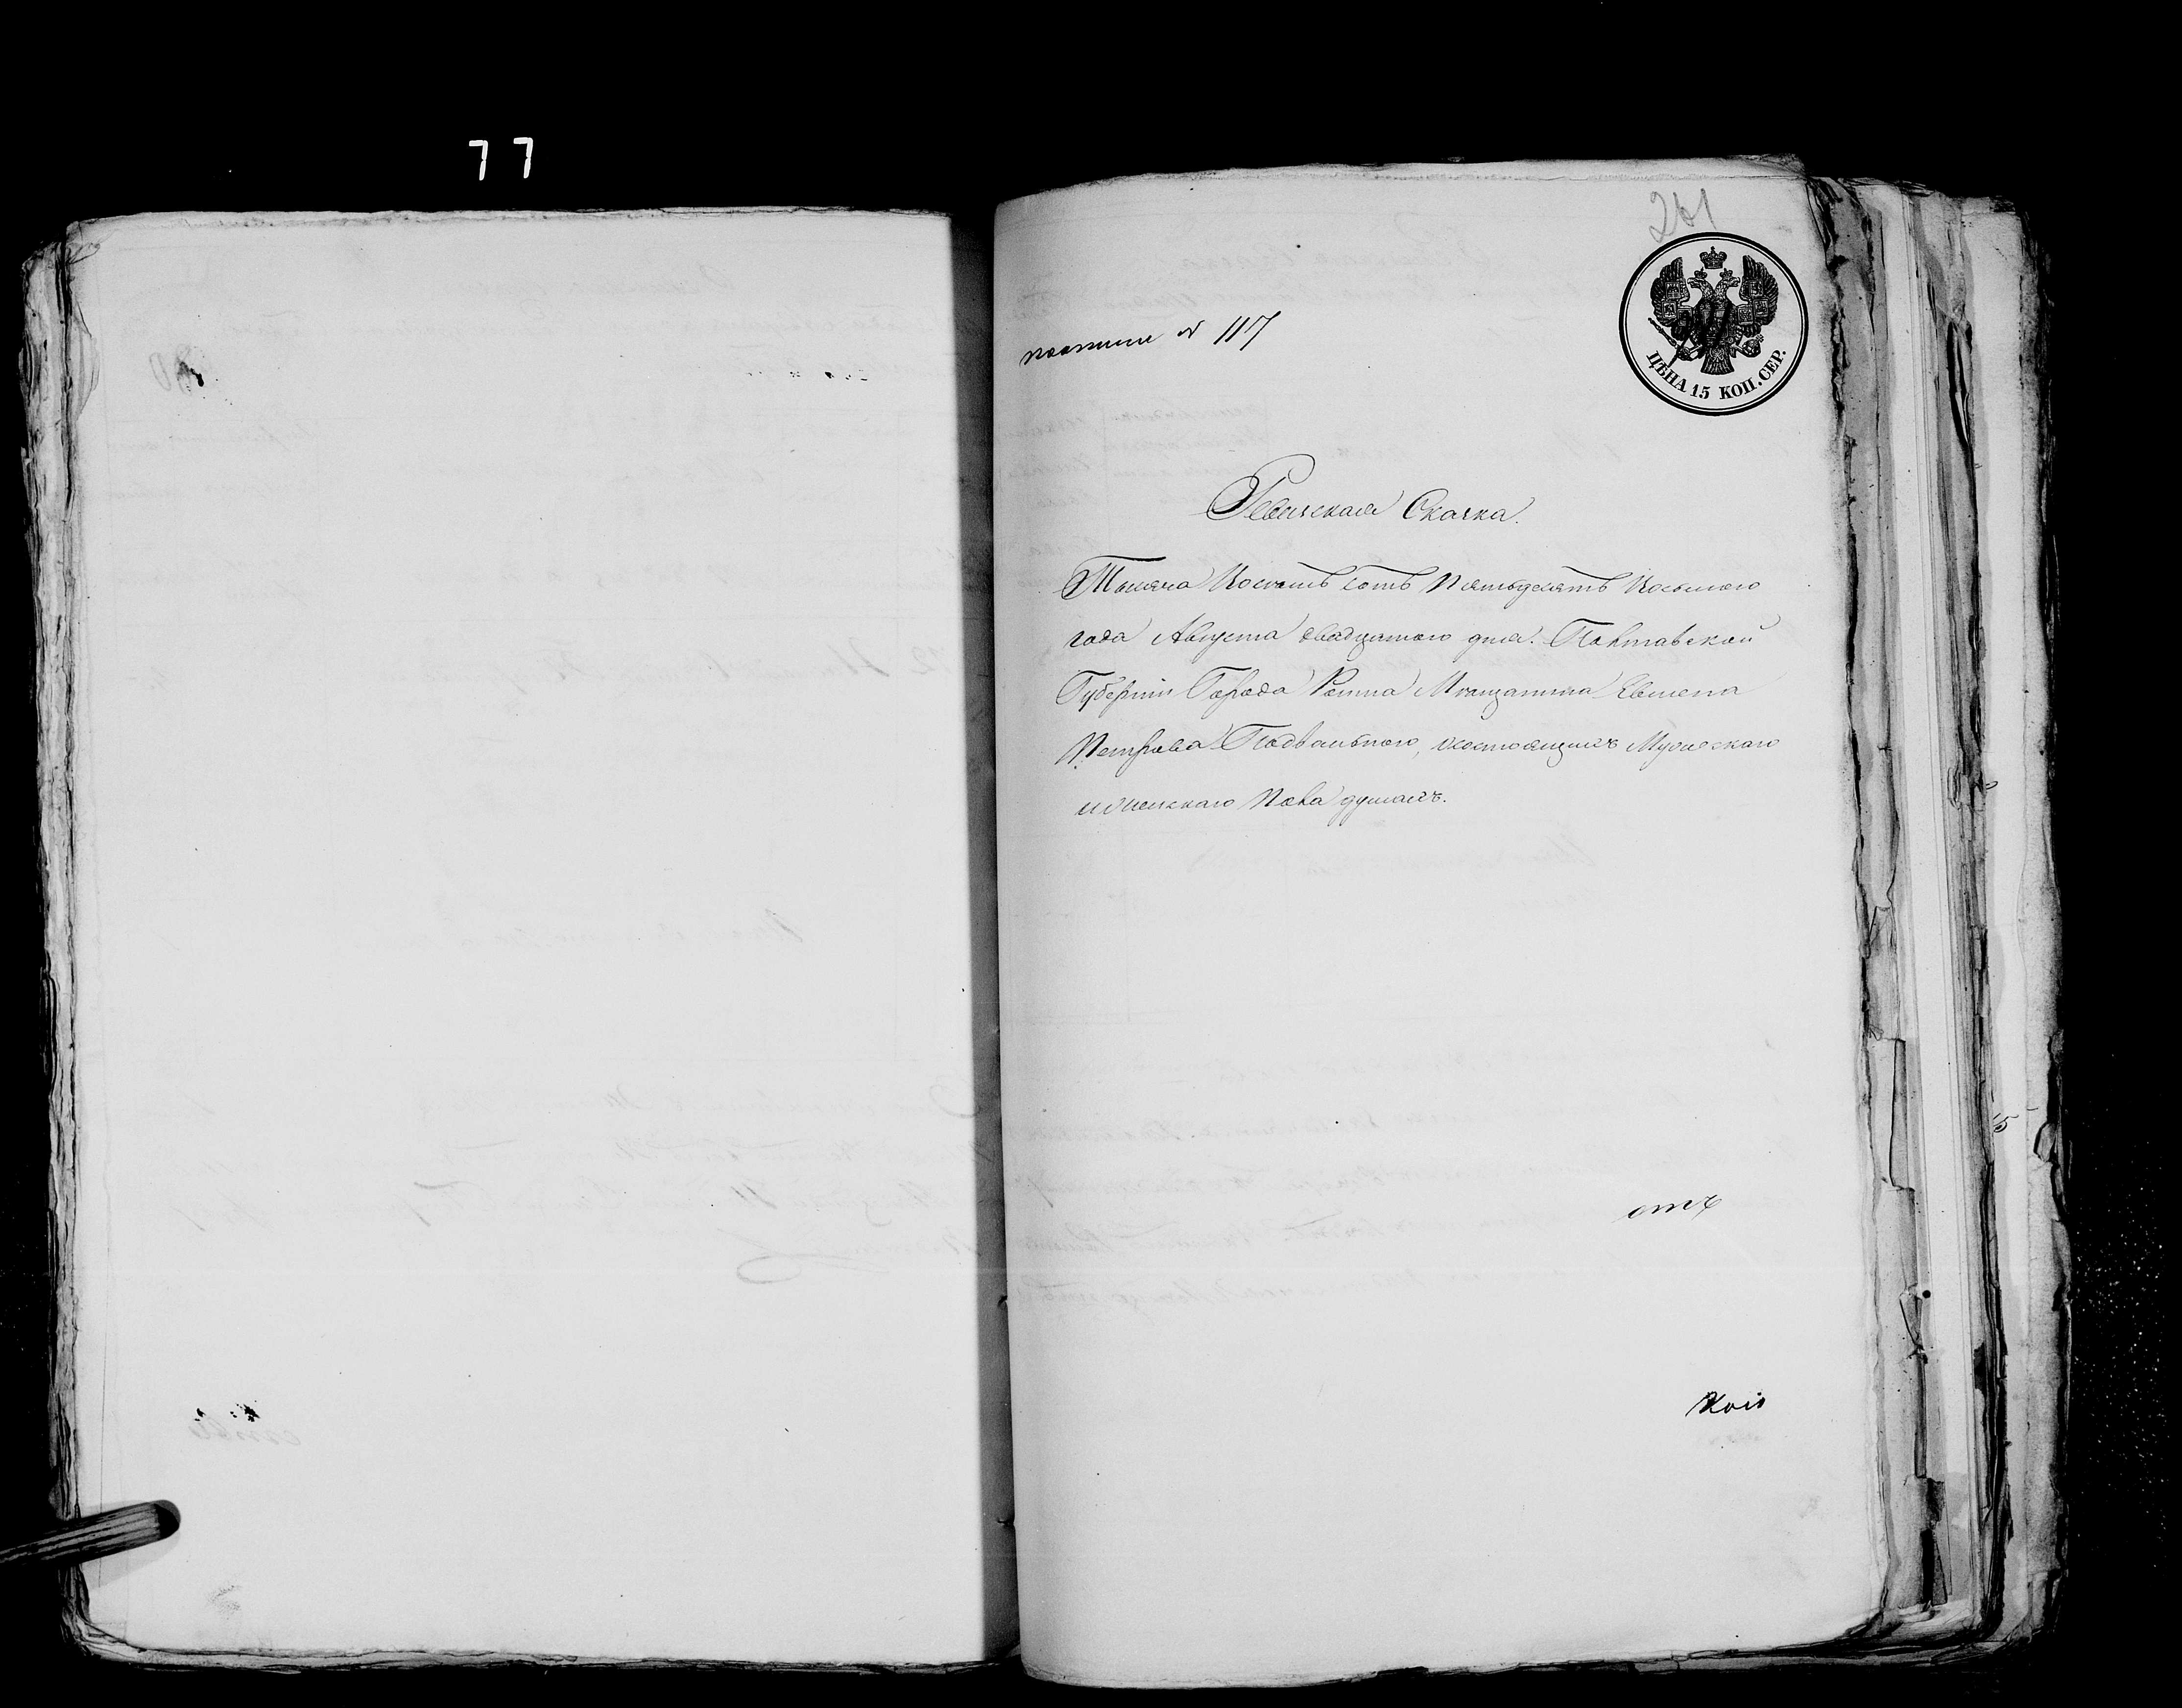 77
261
ЦѢНА 15 КОП. СЕР.
по описи № 117
Ревизская Сказка.
Тысяча Восемь сотъ Пятьдесятъ Восьмого
года Августа двадцатого дня. Полтавской
Губерніи Города Ромна Мѣщанина Евмена
Петрова Подвального, о состоящихъ Мужескаго
и женскаго Пола душахъ.
отъ